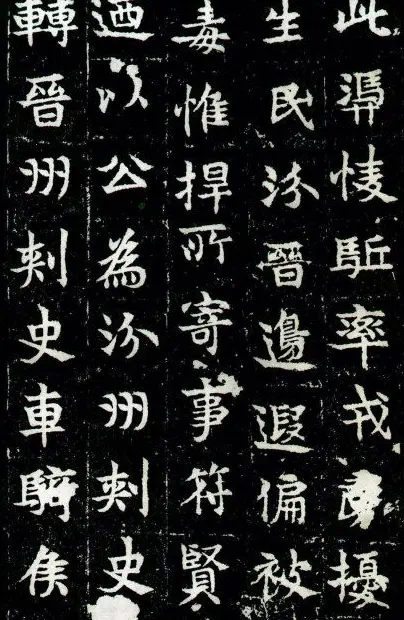 此駈率戎擾
生民汾晉邊遐偏被
毒惟捍所寄事符賢
迺以公為汾州刺史
轉晉州刺史車騎侯